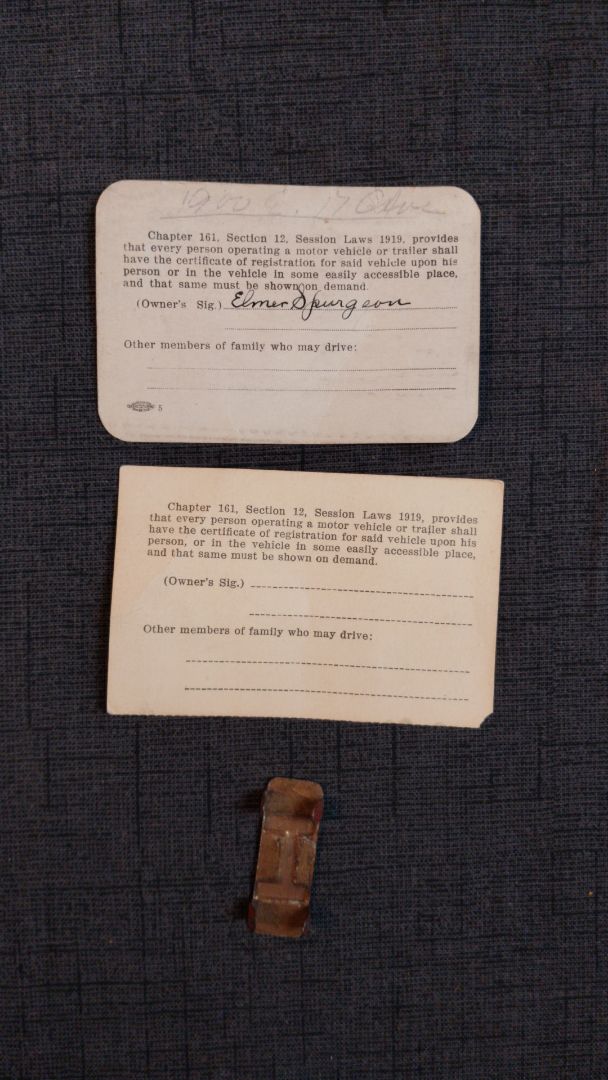 1900 E. 17 Ave
Chapter 161, Section 12, Session Laws 1919, provides
that every person operating a motor vehicle or trailer shall
have the certificate of registration for said vehicle upon his
person or in the vehicle in some easily accessible place,
and that same must be shown on demand.
(Owner's Sig.) Elmer Spurgeon
Other members of family who may drive:
5
Chapter 161, Section 12, Session Laws 1919, provides
that every person operating a motor vehicle or trailer shall
have the certificate of registration for said vehicle upon his
person, or in the vehicle in some easily accessible place,
and that same must be shown on demand.
(Owner's Sig.)
Other members of family who may drive: